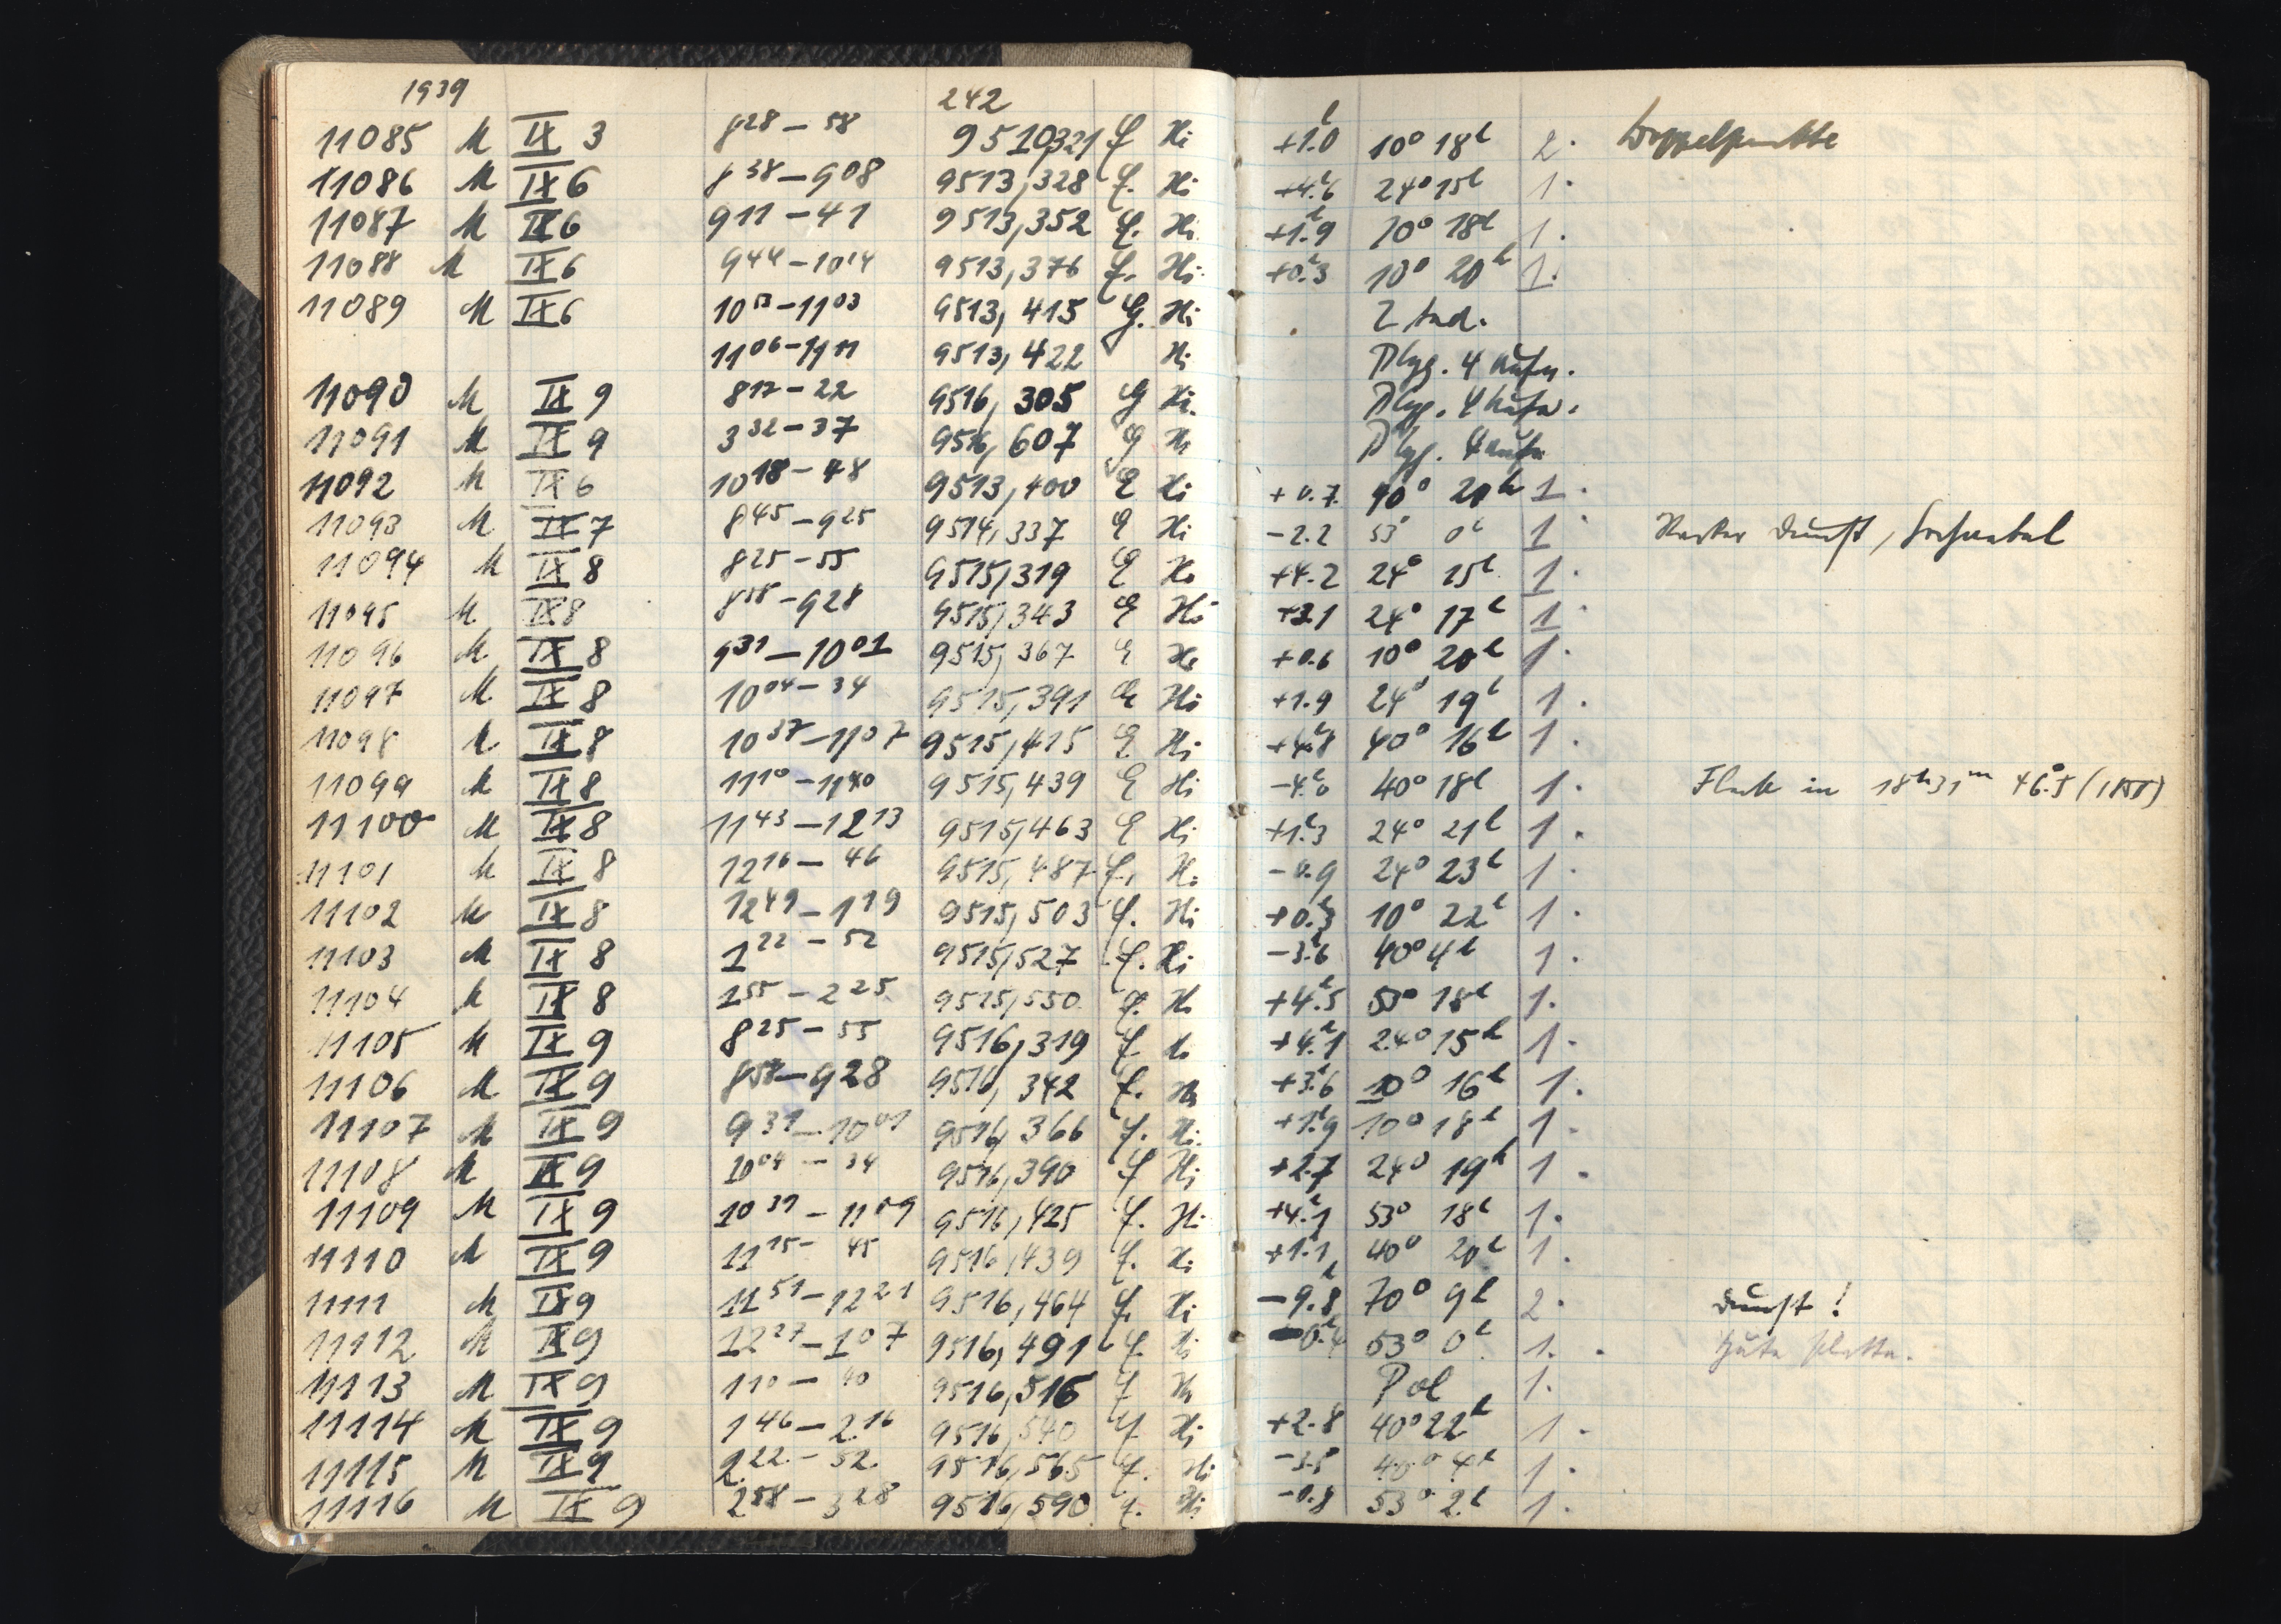 1939 242
11085 M IX 3 8 28 – 58 9510,321 f Hi +1.0 10° 18h 2. Doppelpunkte
11086 M IX 6 8 38 – 9 08 9513,328 f. Hi +4.6 24° 15h 1.
11087 M IX 6 9 11 – 41 9513,352 f. Hi +1.9 10° 18h 1.
11088 M IX 6 9 44 – 10 14 9513,376 f. Hi +0.3 10° 20h 1.
11089 M IX 6 10 53 – 11 03 9513,415 Hi
11 06 – 11 11 9513,422 Hi Plej. 4 Aufn.
11090 M IX 9 8 17 – 22 9516,305 Hi Plej. 4 Aufn.
11091 M IX 9 3 32 – 37 9516,607 Hi Plej. 4 Aufn
11092 M IX 6 10 18 – 48 9513,400 E Hi +0.7 10° 20h 1.
11093 M IX 7 8 45 – 9 25 9514,337 E Hi –2.2 53° 0h 1 Starker Dunst, Hochnebel
11094 M IX 8 8 25 – 55 9515,319 E Hi +4.2 24° 15h 1.
11095 M IX 8 8 58 – 9 28 9515,343 E Hi +3.1 24° 17h 1
11096 M IX 8 9 31 – 10 01 9515,367 E Hi +0.6 10° 20h 1.
11097 M IX 8 10 04 – 34 9515,391 E Hi +1.9 24° 19h 1.
11098 M IX 8 10 37 – 11 07 9515,415 E Hi +4.8 40° 16h 1.
11099 M IX 8 11 10 – 11 40 9515,439 E Hi –4.0 40° 18h 1. Fleck in 18h 31m +6.5 (1855)
11100 M IX 8 11 43 – 12 13 9515,463 E Hi +1.3 24° 21h 1.
11101 M IX 8 12 16 – 46 9515,487 f. Hi –0.9 24° 23h 1.
11102 M IX 8 12 49 – 1 19 9515,503 f. Hi +0.3 10° 22h 1.
11103 M IX 8 1 22 – 52 9515,527 f. Hi –3.6 40° 4h 1.
11104 M IX 8 1 55 – 2 25 9515,550 f. Hi +4.5 53° 18h 1.
11105 M IX 9 8 25 – 55 9516,319 f Hi +4.1 24° 15h 1.
11106 M IX 9 8 58 – 9 28 9516,342 f. Hi +3.6 10° 16h 1.
11107 M IX 9 9 31 – 10 01 9516,366 f. Hi +1.9 10° 18h 1.
11108 M IX 9 10 04 – 34 9516,390 f Hi +2.7 24° 19h 1.
11109 M IX 9 10 39 – 11 09 9516,425 f. Hi +4.1 53° 18h 1.
11110 M IX 9 11 15 – 45 9516,439 f. Hi +1.1 40° 20h 1.
11111 M IX 9 11 51 – 12 21 9516,464 f. Hi –9.8 70° 9h 2. Dunst!
11112 M IX 9 12 27 – 1 07 9516,491 f. Hi –0.4 53° 0h 1. Gute Platte.
11113 M IX 9 1 10 – 40 9516,516 f Hi Pol 1.
11114 M IX 9 1 46 – 2 16 9516,540 f Hi +2.8 40° 22h 1.
11115 M IX 9 2 22 – 52 9516,565 f. Hi –3.5 40° 4h 1.
11116 M IX 9 2 58 – 3 28 9516,590 f. Hi –0.8 53° 2h 1.